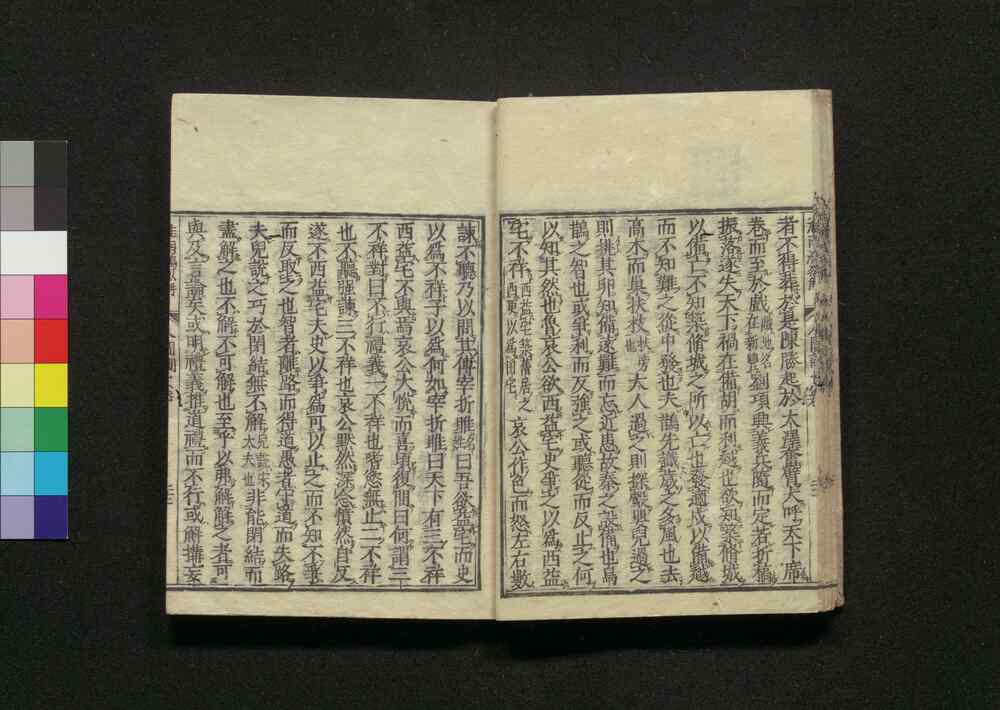 者不得葬於是陳勝起於大澤奮臂大呼天下席
卷而至於戲劉項興義兵隨而定若折槁
振落遂失天下禍在備胡而利越也欲知築脩城
以備亡不知築脩城之所以亡也發適戍以備越
而不知難之從中發也夫鵲先識歲之多風也去
高木而巢扶枝大人過之則探鷇嬰兒過之
則挑其卵知備遠難而忘近患故秦之設備也烏
鵲之智也或爭利而反強之或聽從而反止之何
以知其然也魯哀公欲西益宅史爭之以爲西益
宅不祥西益宅築舊居之西更以爲田宅哀公作色而怒左右數
諫不聽乃以問其傅宰折睢曰吾欲益宅而史
以爲不祥子以爲何如宰折睢曰天下有三不祥
西益宅不與焉哀公大悅而喜頃復問曰何謂三
不祥對曰不行禮義一不祥也嗜慾無止二不祥
也不聽強諫三不祥也哀公默然深念憤然自反
遂不西益宅夫史以爭爲可以止之而不知不爭
而反取之也智者離路而得道愚者守道而失路
夫兒說之巧於閉結無不解兒說宋大夫也非能閉結而
盡解之也不解不可解也至乎以弗解解之者可
與及言論矣或明禮義推道禮而不行或解構妄